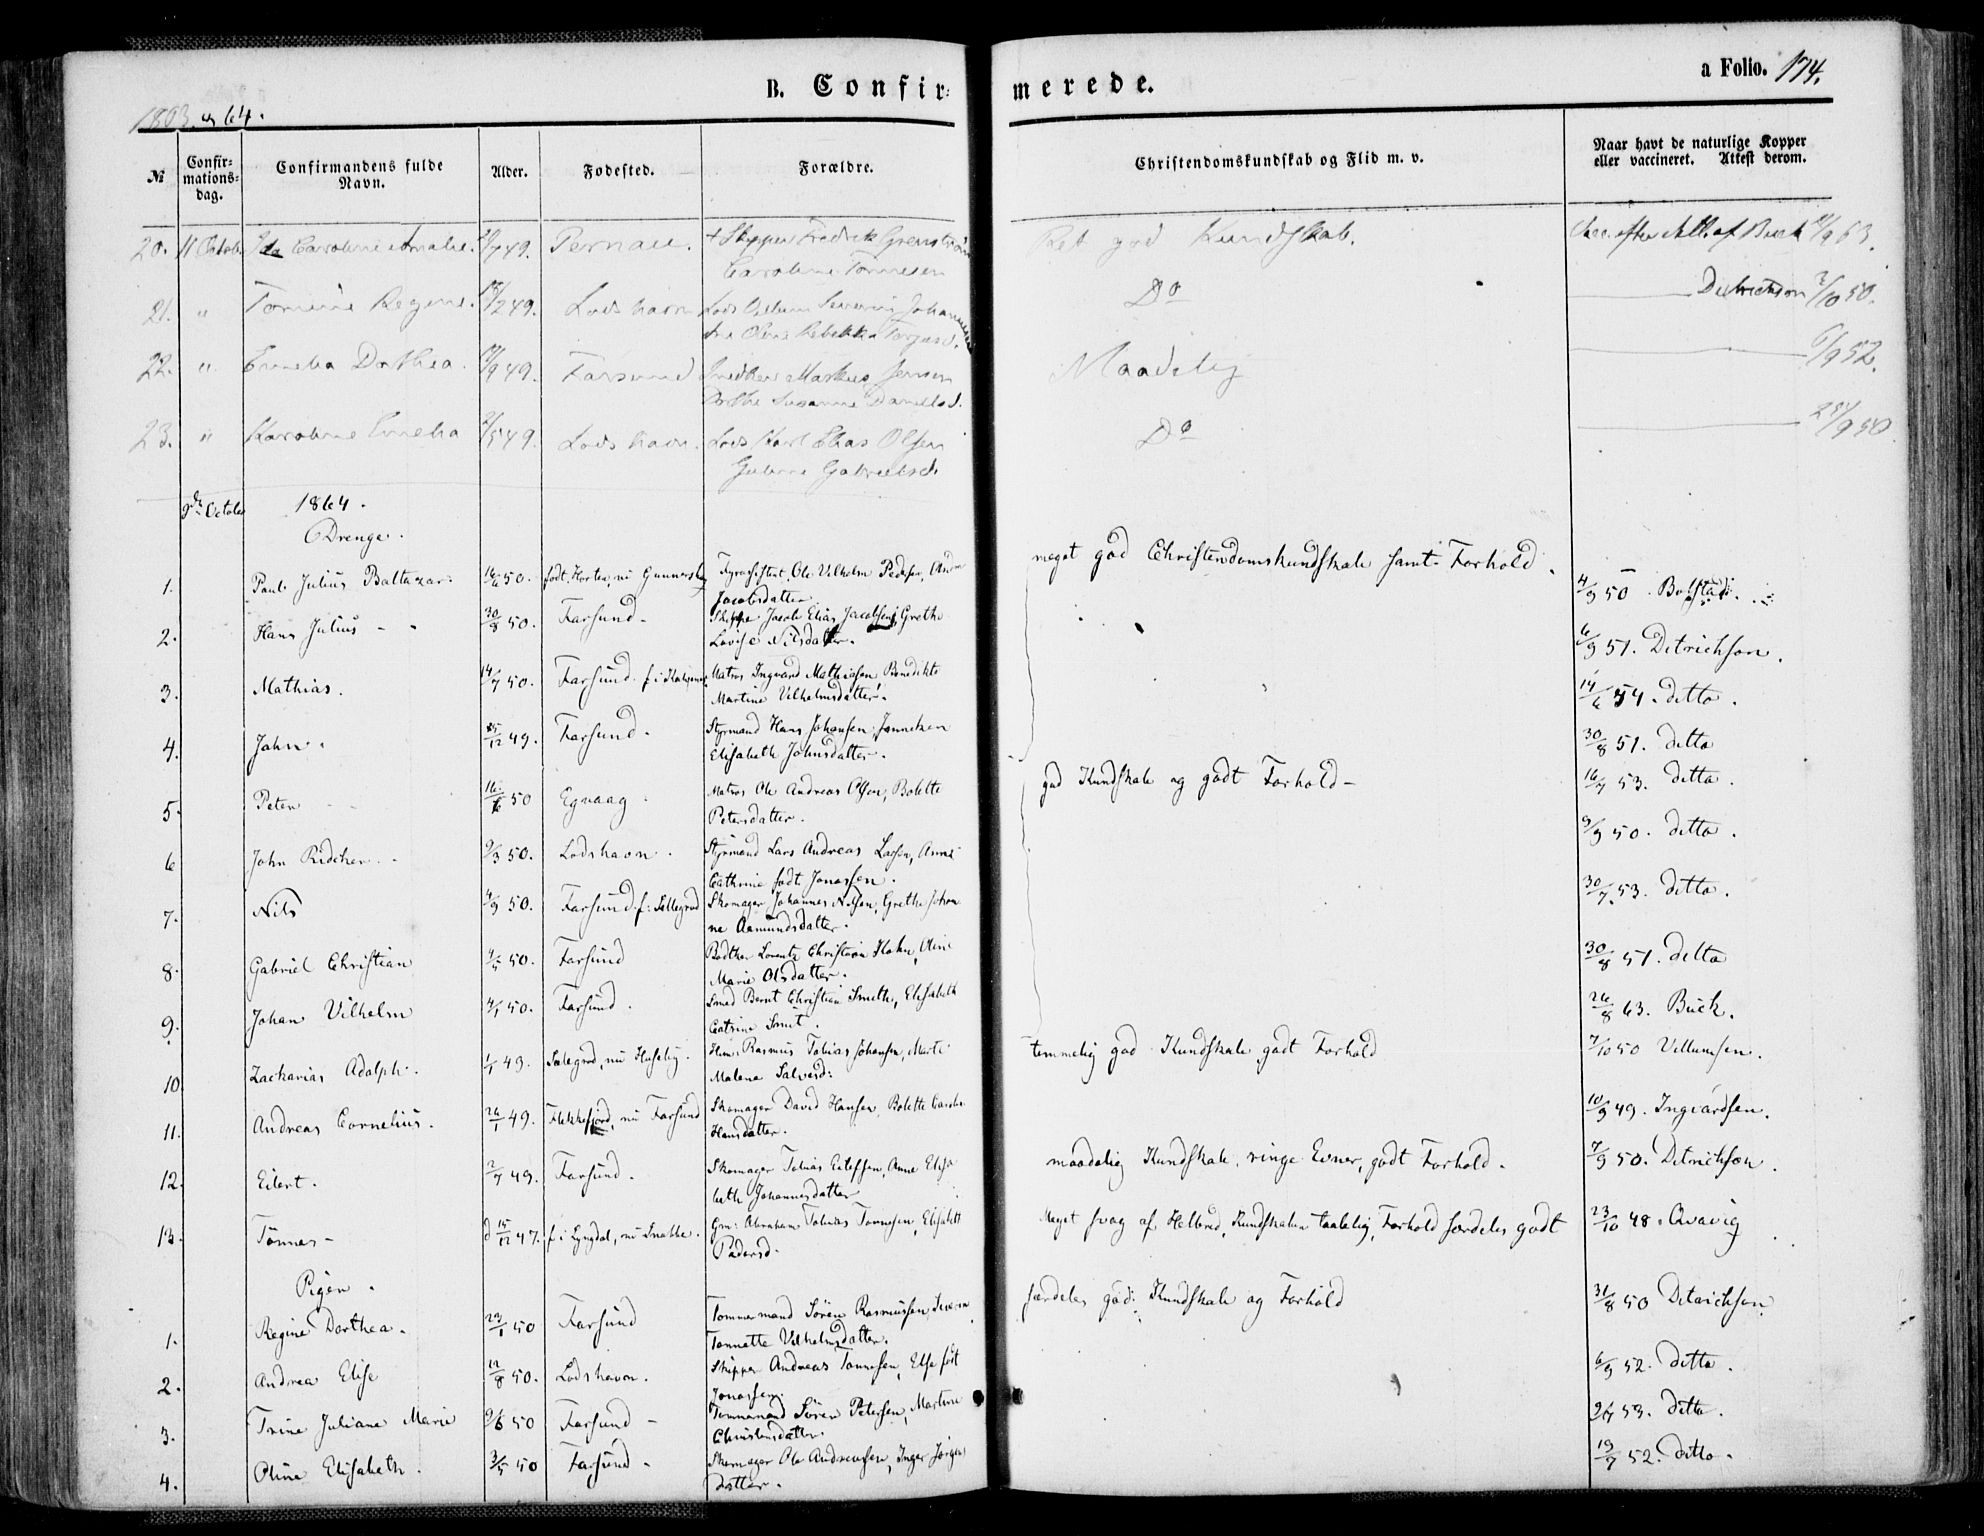 B. Confir-
merede.
a Folio. 174.
1863 og 64.
№
Confir-
mations-
dag.
Confirmandens fulde
Navn.
Alder.
Fødested.
Forældre.
Christendomskundskab og Flid m. v.
Naar havt de naturlige Kopper
eller vaccineret. Attest derom.
20. 11 Octob Ida Caroline Amalie. /7 49. Pernau. + Skipper Fredrik Grønstrøm Ret god Kundskab. Vacc. efter Att. af Buck /9 63.
Caroline Tønnesen
21. " Tomine Regine. /2 49. Lodshavn Lods Vilhelm Severin Johannesen Do Detrichson 3/10 50.
Olene Rebekka Torgusd.
22. " Emelia Dorthea. /9 49. Farsund Snedker Markus Jensen Maadelig 6/9 52.
Dorthe Susanne Danielsd.
23. " Karoline Emelia 2/5 49. Lodshavn. Lods Karl Elias Olsen Do 25/9 50.
Juliane Gabrielsd.
9de October 1864.
Drenge.
1. Paul Julius Balthazar. 16/6 50. født i Horten, nu Gunnersby Fyrassistent, Ole Vilhelm Pedersen, Anne meget god Christendomskundskab samt Forhold. 4/9 50. Bolstad.
Jacobsdatter
2. Hans Julius - 30/8 50. Farsund - Skipper Jacob Elias Jacobsen, Grethe 6/9 51. Detrichson.
Lovise Nilsdatter.
3. Mathias. 14/7 50. Farsund. Matros Ingvard Mathiasen, Benedikte 14/6 54. ditto.
Martine Vilhelmsdatter.
4. John. 25/12 49. Farsund. Styrmand Hans Johansen, Jonneken 30/8 51. ditto
Elisabeth Johnsdatter.
5. Peter 16/6 50 Egvaag. Matros Ole Andreas Olsen, Bolette god Kundskab og godt Forhold - 16/7 53. ditto.
Petersdatter.
6 John Ridcher. 9/3 50. Lodshavn. Styrmand Lars Andreas Larsen, Anne 9/9 50. ditto.
Cathrine født Jonassen.
7. Nils 4/9 50. Farsund. Skomager Johannes Nilsen, Grethe Johan 30/7 53. ditto.
ne Aamundsdatter.
8. Gabriel Christian 4/5 50. Farsund Bødker Lorentz Christian Hahn, Oline 30/8 51. ditto
Marie Olsdatter.
9. Johan Vilhelm 4/1 50. Farsund. Smed Bernt Christian Smith, Elisabeth 26/8 63. Buck.
Catrine Smit.
10. Zacharias Adolph. 1/1 49. Sælegrod, nu Huseby. Huusm. Rasmus Tobias Johansen, Marte temmelig god Kundskab, godt Forhold 7/10 50 Villumsen.
Malene Salvesd:
11. Andreas Cornelius. 26/1 49. Flekkefjord, nu Farsund Skomager David Hansen, Bolette Caroline 10/9 49. Ingvardsen.
Hansdatter.
12. Eilert. 2/7 49. Farsund. Skomager Tobias Eilefsen, Anne Elisa maadelig Kundskab, ringe Evner, godt Forhold. 7/9 50. Detrichson.
beth Johannesdatter
13. Tønnes - d 15/12 47. f. i Lyngdal, nu Snekke. Gm: Abraham Tobias Tønnesen, Elisabeth Meget svag af Helbred, Kundskaben taalelig, Forhold særdeles godt 23/10 48. Qvavig
Pedersd.
Piger.
1. Regine Dorthea. 29/1 50 Farsund Tømmermand Søren Rasmussen, særdeles god Kundskab og Forhold 31/8 50 Detrichson
Tonnette Vilhelmsdatter.
2. Andrea Elise 12/8 50. Lodshavn. Skipper Andreas Tønnesen, Else født 6/9 52. ditto.
Jonassen.
3. Trine Juliane Marie 9/6 50 Farsund - Tømmermand Søren Petersen, Martine 2/7 53. ditto.
Christensdatter.
4. Oline Elisabeth. 3/5 50 Farsund - Skomager Ole Andreassen, Inger Jørgens 19/7 52. ditto.
datter.